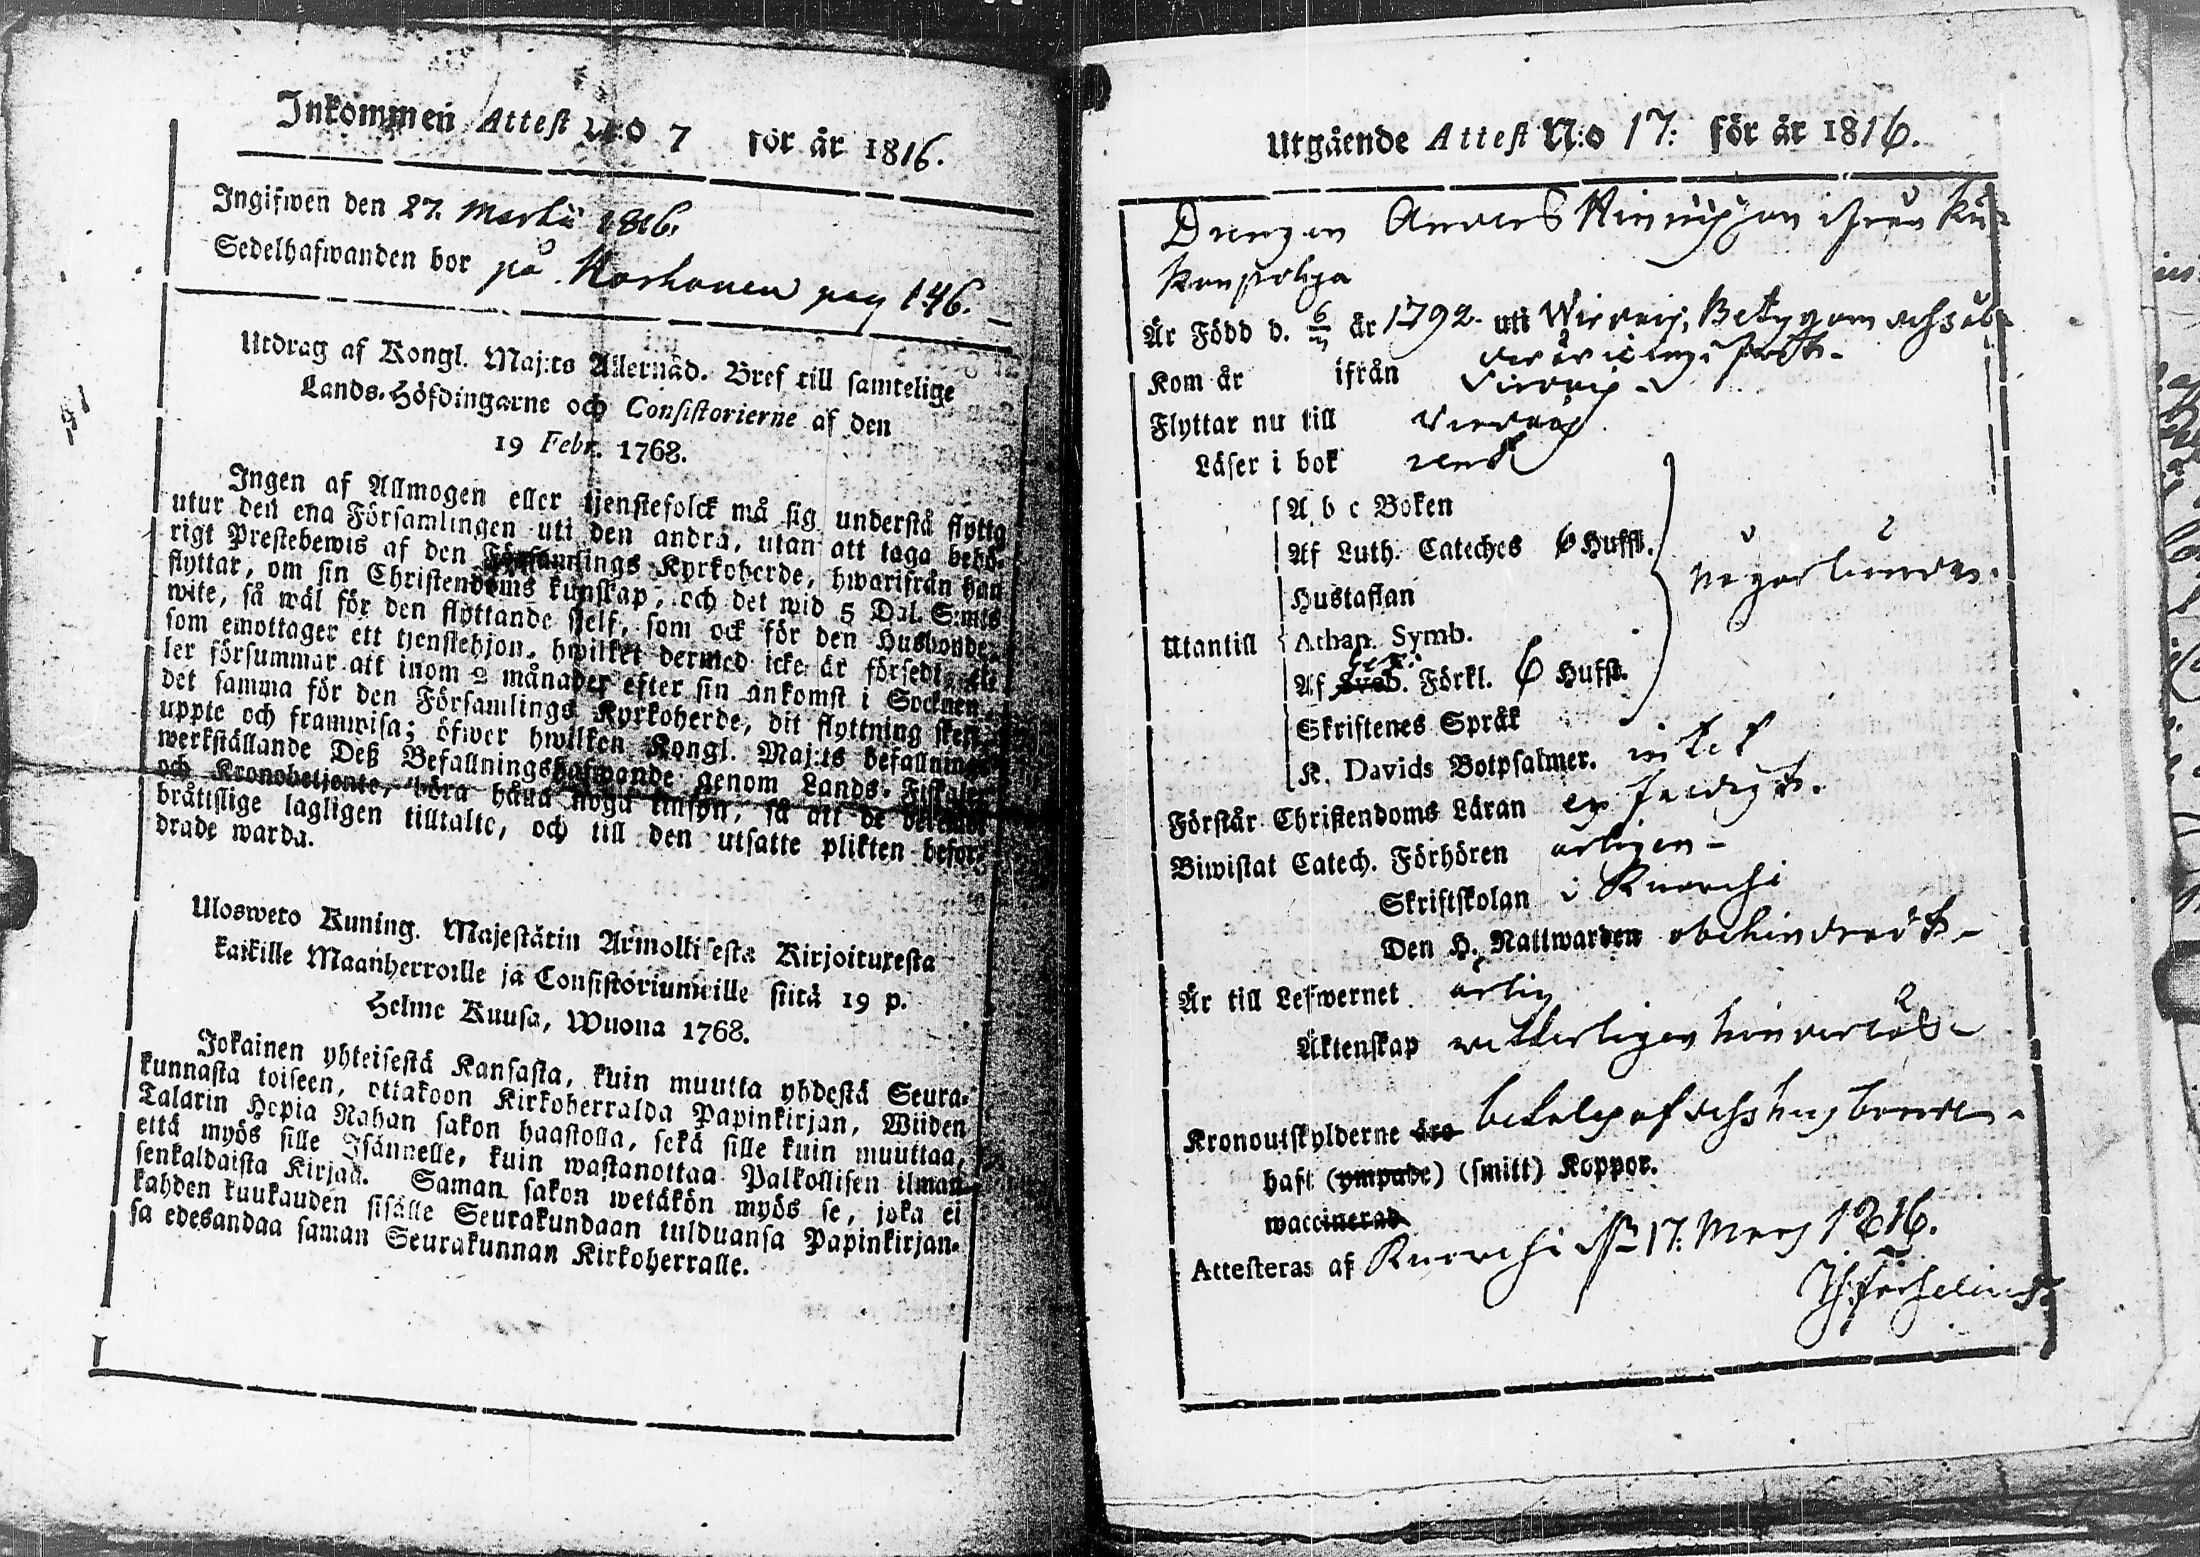 Inkommen Attest N:o 7 för år 1816.
Ingifwen den 27. Martii 1816.
Sedelhafwanden bor på Korhonen pag 146.
Utdrag af Kongl. Maj:ts Allernåd. Bref till samtelige
Lands-Höfdingarne och Consistorierne af den
19 Febr. 1768.
Ingen af Allmogen eller tjenstefolck må sig understå flytta
utur den ena Församlingen uti den andra, utan att taga behö-
rigt Prestebewis af den Församlings Kyrkoherde, hwarifrån han
flyttar, om sin Christendoms kunskap, och det wid 5 Dal. S:mts
wite, så wäl för den flyttande sjelf, som ock för den Husbonde,
som emottager ett tjenstehjon, hwilket dermed icke är försedt, el-
ler försummar att inom 2 månader efter sin ankomst i Socknen,
det samma för den Församlings Kyrkoherde, dit flyttning sker,
uppte och framwisa; öfwer hwilken Kongl. Maj:ts befallnings
werkställande Deß Befallningshafwande genom Lands-Fiskaler
och Kronobetjente, böra hafwa noga inseyn, så att de
bråttslige lagligen tilltalte, och till den utsatte plikten befor-
drade warda.
Ulosweto Kuning. Majestätin Armollisesta Kirjoituxesta
kaikille Maanherroille ja Consistoriumeille siitä 19 p.
Helme Kuusa, Wuona 1768.
Jokainen yhteisestä Kansasta, kuin muutta yhdestä Seura-
kunnasta toiseen, ottakoon Kirkoherralda Papinkirjan, Wiiden
Talarin Hopia Rahan sakon haastolla, sekä sille kuin muuttaa,
että myös sille Isännelle, kuin wastanottaa Palkollisen ilman
senkaldaista Kirjaa. Saman sakon wetäkön myös se, joka ei
kahden kuukauden sisälle Seurakundaan tulduansa Papinkirjan-
sa edesandaa saman Seurakunnan Kirkoherralle.
Utgående Attest N:o 17: för år 1816.
Drengen Anders ifrån
Är Född d. 6 år 1792. uti
Kom år ifrån
Flyttar nu till
Läser i bok
A b c Boken
Af Luth. Cateches 6 Hufst.
Hustaflan
Utantill Athan. Symb.
Af Sveb. Förkl. 6 Hufst.
Skriftenes Språk
K. Davids Botpsalmer. intet
Förstår Christendoms Läran
Biwistat Catech. Förhören årligen
Skriftskolan i
Den H. Nattwarden obehindradt
Är till Lefwernet ärlig
Äktenskap wetterligen hinderlös
Kronoutskylderne äro betalas af dess husbonde
haft (ympade) (smitt) Koppor.
waccinerad
Attesteras af 17. Mars 1816.